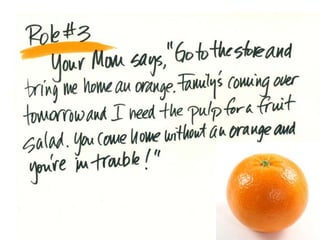 Role #3
Your Mom says, "Go to the store and
bring me home an orange. Family's coming over
tomorrow and I need the pulp for a fruit
salad. You come home without an orange and
you're in trouble!"